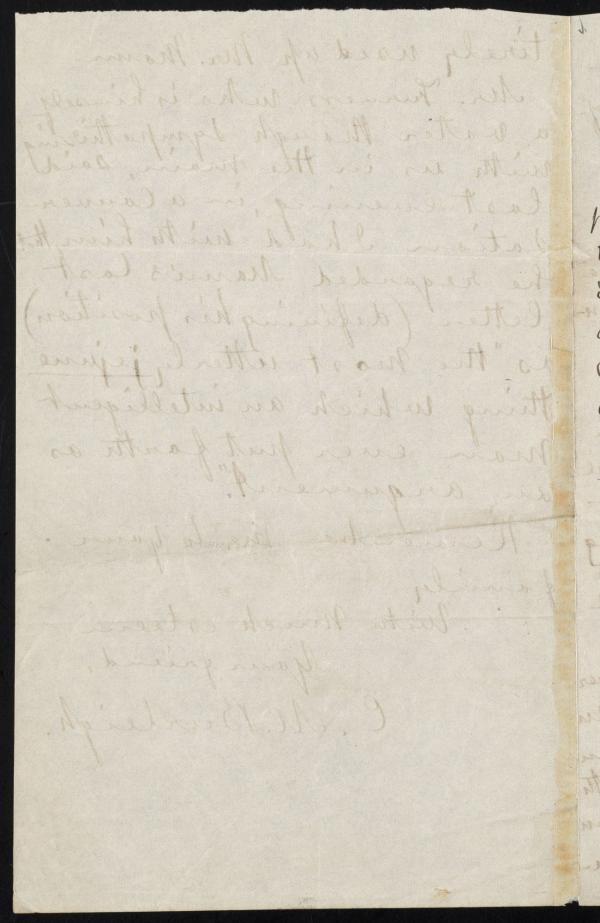 tirely used up Mr. Mann
Mr. Furness who is himself
a voter though sympathizing
with us in the main, said
last evening, in a conver
sation I had with him that
he regarded Mann's last
letter (defining his position)
as "the most utterly jejune
thing which an intelligent
man ever put forth as
an argument."
Remember me to your
family
With much esteem
Your friend,
C. M. Burleigh.